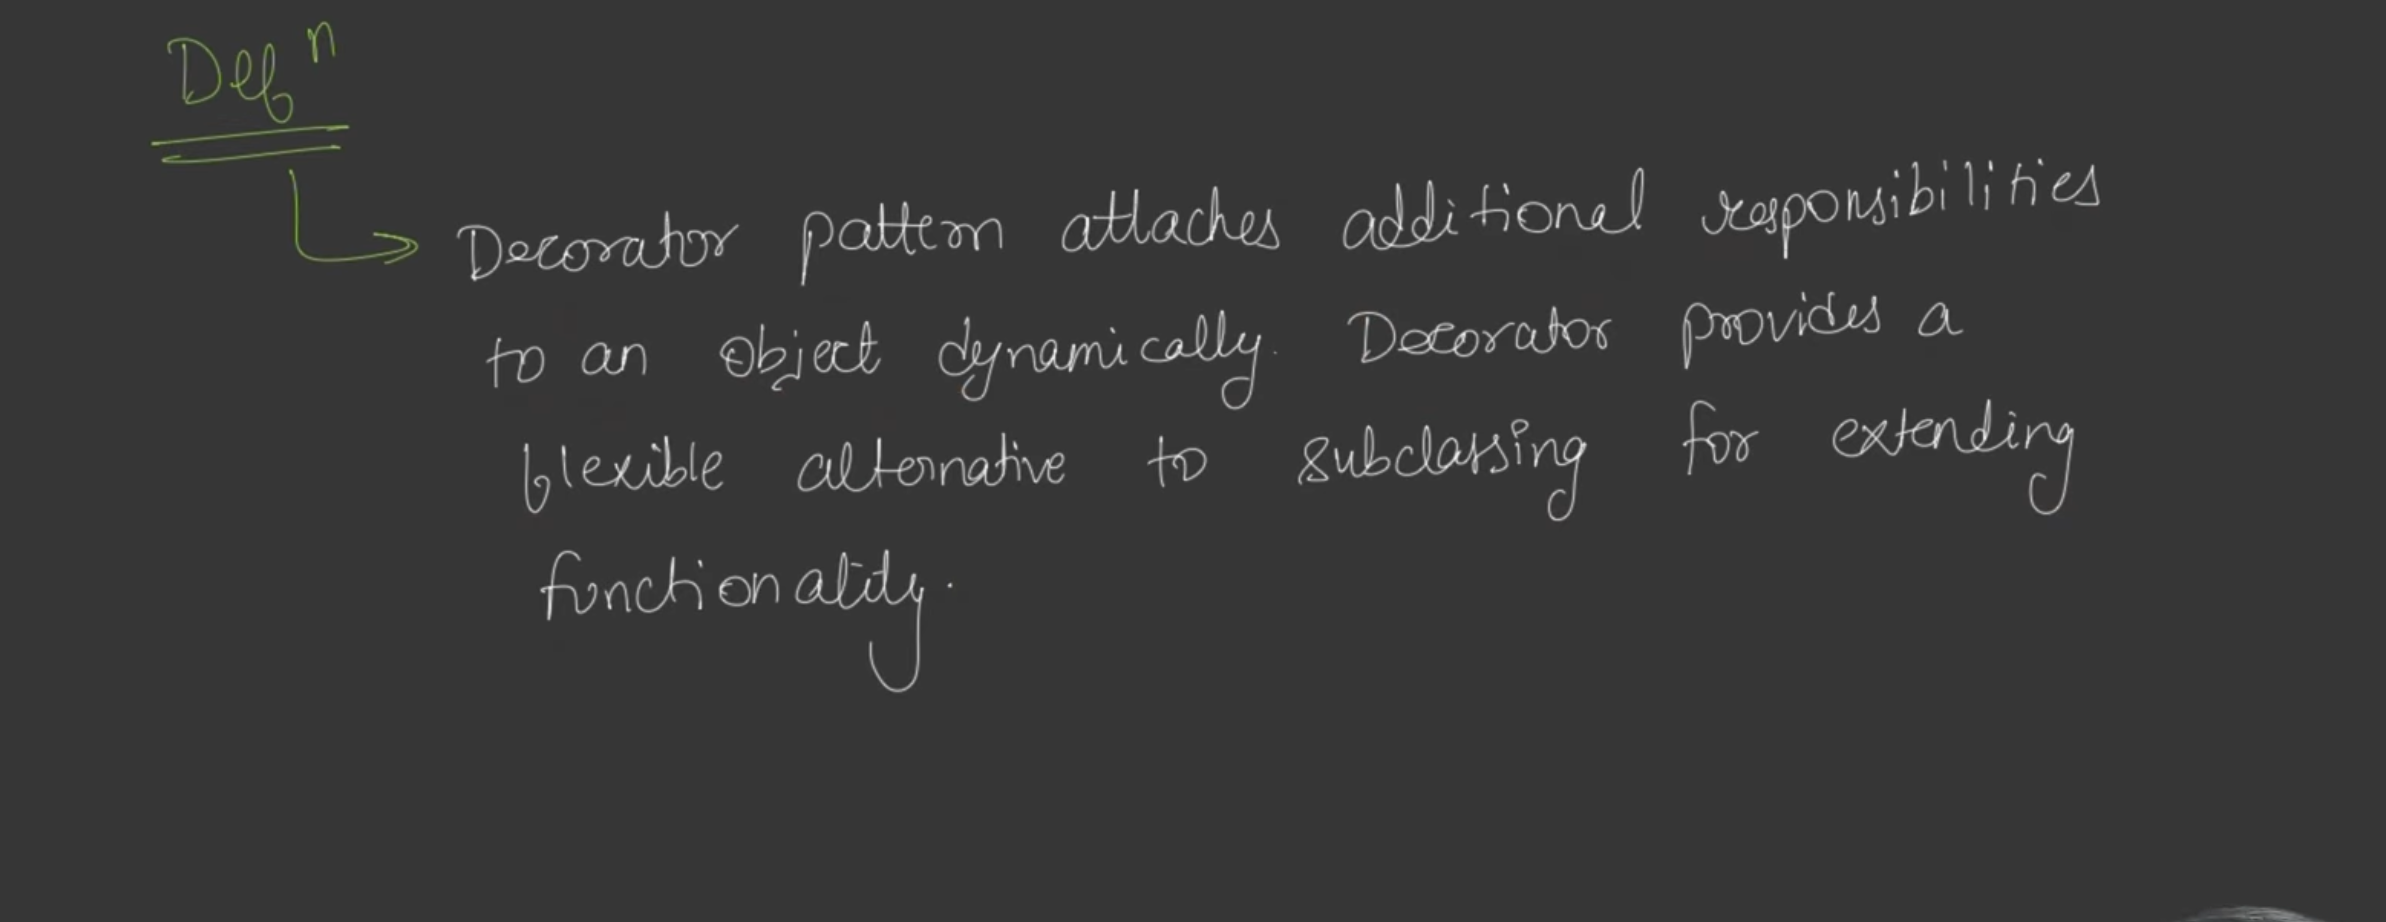 Defⁿ
Decorator pattern attaches additional responsibilities
to an object dynamically. Decorator provides a
flexible alternative to subclassing for extending
functionality.